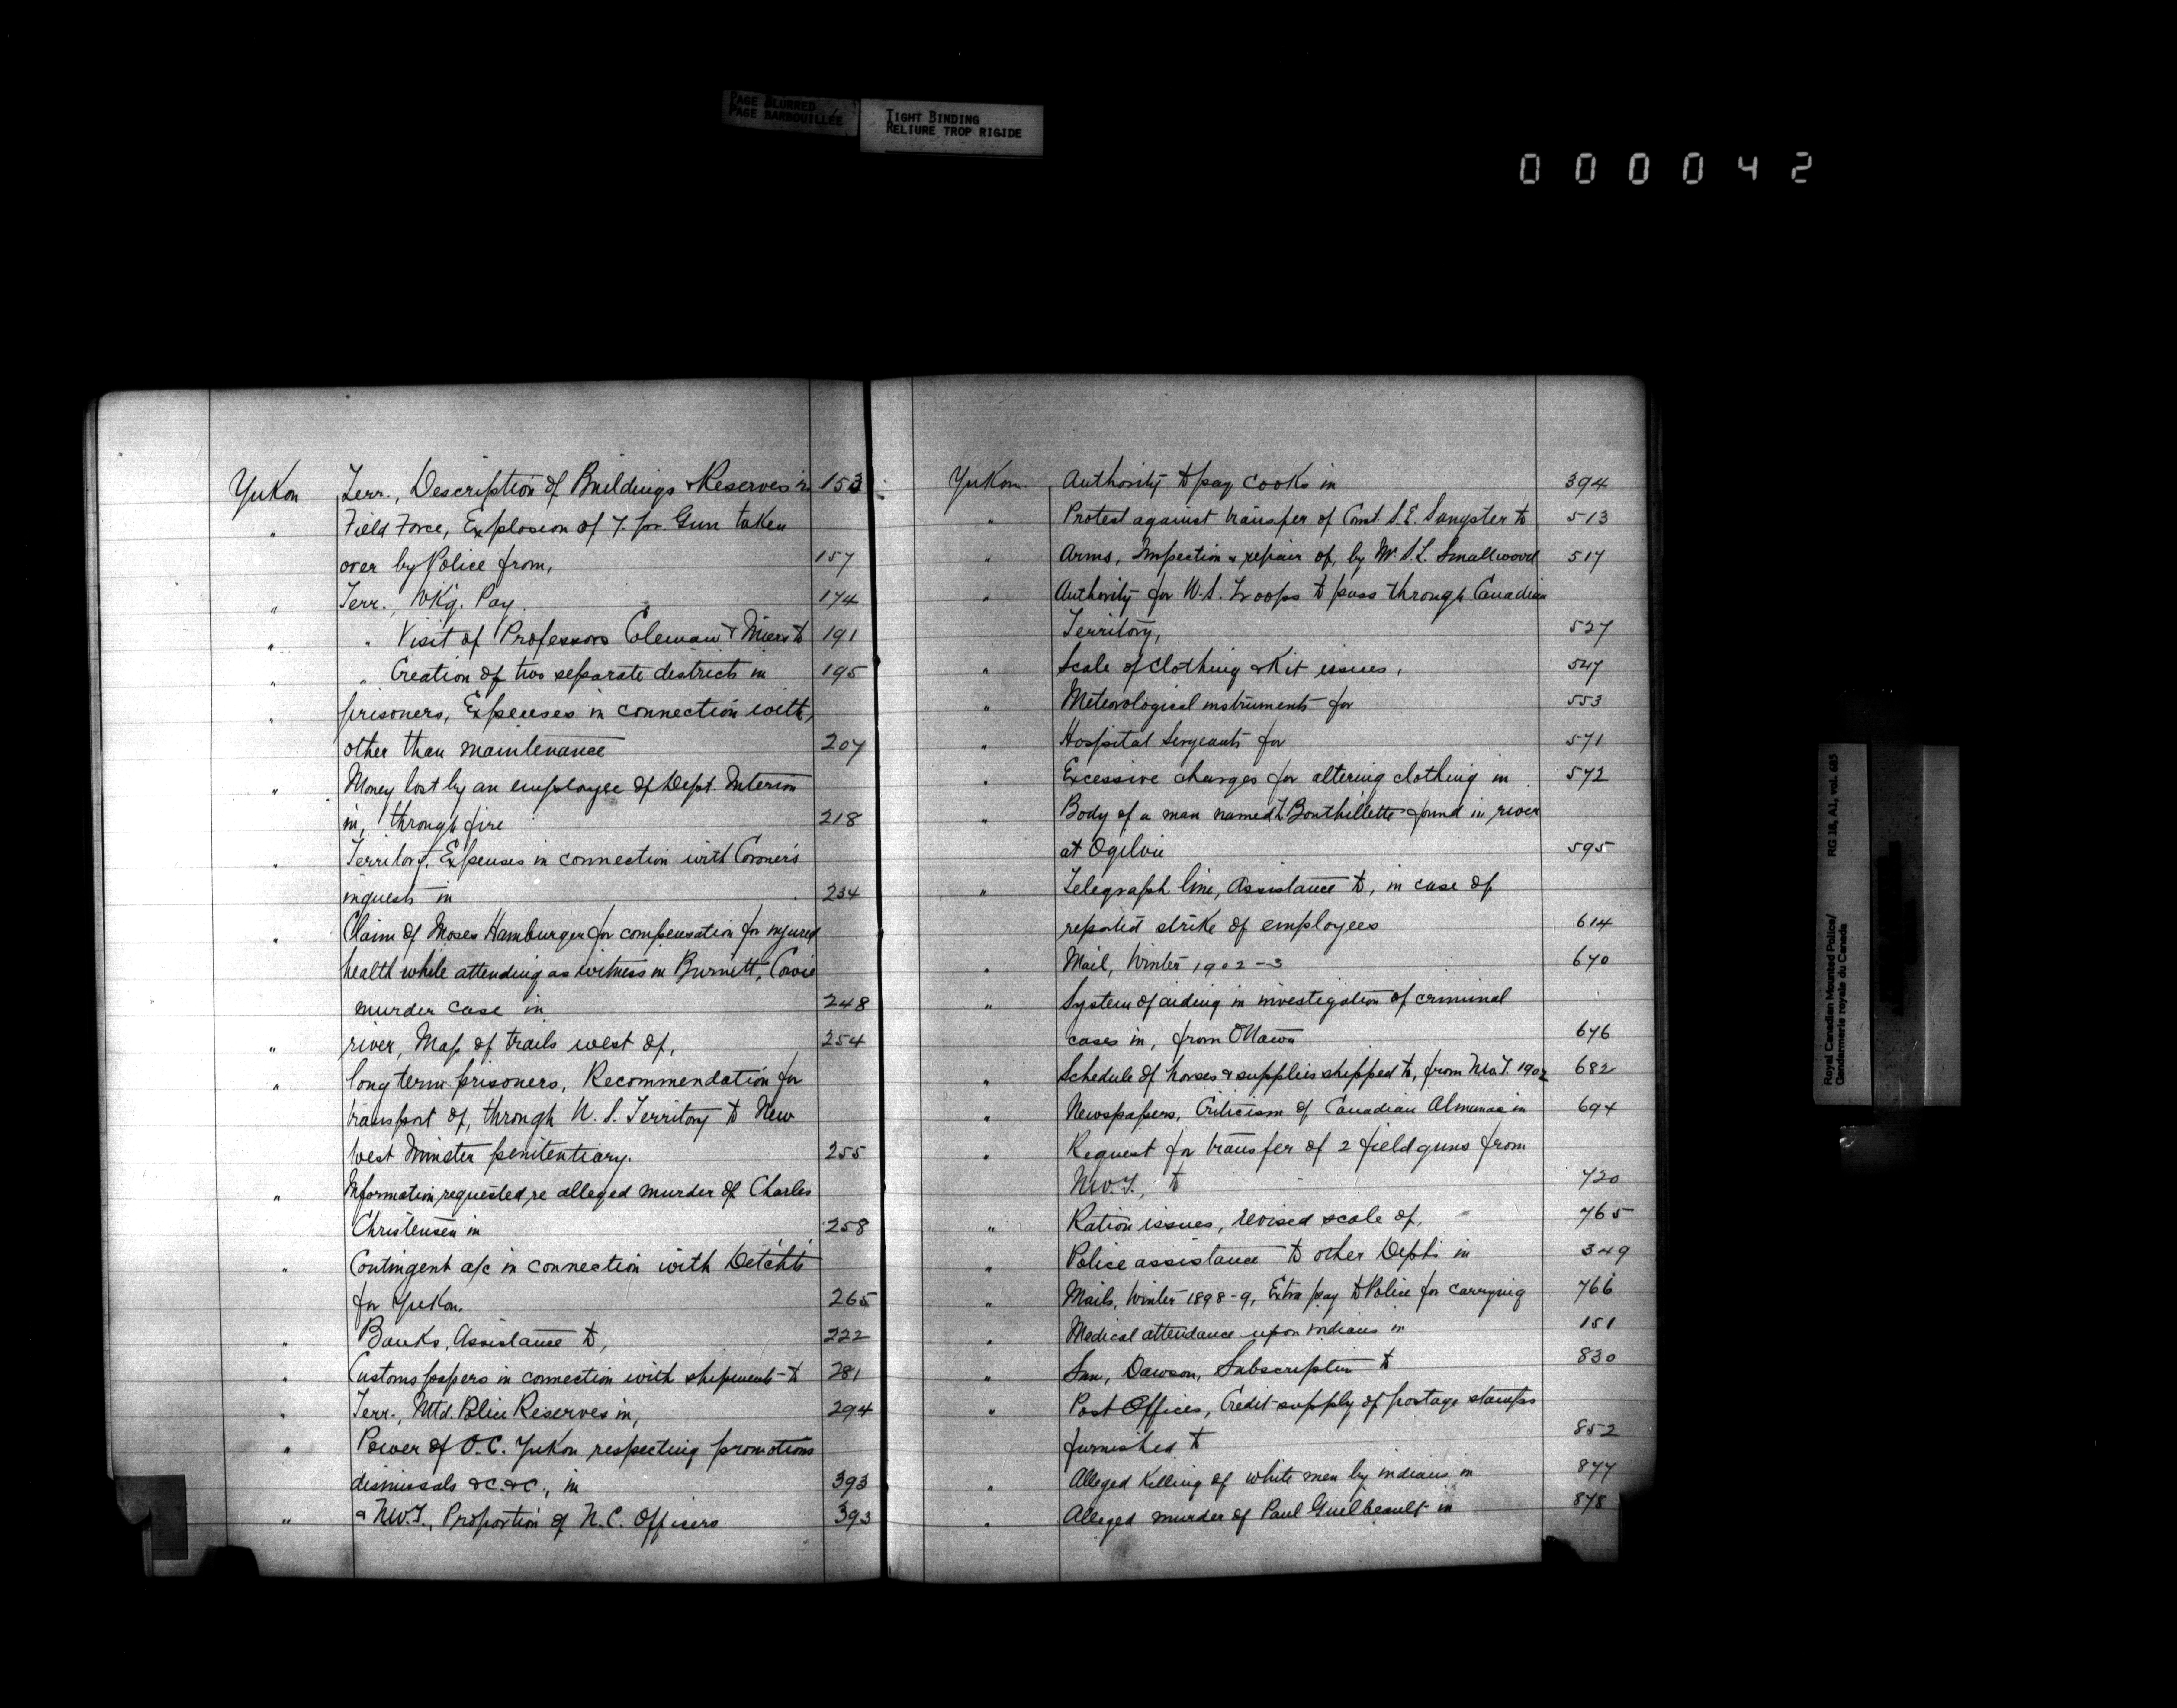 PAGE BLURRED
PAGE BARBOUILLÉE
TIGHT BINDING
RELIURE TROP RIGIDE
000042
Yukon Terr., Description of Buildings & Reserves in 153
" Field Force, Explosion of 7 pr Gun taken
over by Police from, 157
" Terr., Wkg. Pay. 174
" " Visit of Professors Coleman & Miers to 191
" " Creation of two separate districts in 195
" prisoners, Expenses in connection with,
other than maintenance 207
" Money lost by an employee of Dept. Interior
in, through fire 218
" Territory, Expenses in connection with Coroner's
inquests in 234
" Claim of Moses Hamburger for compensation for injured
health while attending as witness in Burnett, Cowie
murder case in 248
" river, Map of trails west of, 254
" long term prisoners, Recommendation for
transport of, through U.S. Territory to New
West Minster penitentiary. 255
" Information requested re alleged murder of Charles
Christensen in 258
" Contingent a/c in connection with Detcht's
for Yukon. 265
" Banks, Assistance to, 222
" Customs papers in connection with shipments to 281
" Terr., Mtd. Police Reserves in, 294
" Power of O.C. Yukon respecting promotions
dismissals &c. &c., in 393
" & N.W.T., Proportion of N.C. Officers 393
Yukon. Authority to pay cooks in 394
" Protest against transfer of Const. S.E. Sangster to 513
" Arms, Inspection & repair of, by Mr. S.L. Smallwood 517
" Authority for U.S. Troops to pass through Canadian
Territory, 527
" Scale of clothing & Kit issues, 547
" Meteorological instruments for 553
" Hospital Sergeants for 571
" Excessive charges for altering clothing in 572
" Body of a man named L. Bouthillette found in river
at Ogilvie 595
" Telegraph line, Assistance to, in case of
reported strike of employees 614
" Mail, Winter 1902-3 670
" System of aiding in investigation of criminal
cases in, from Ottawa 676
" Schedule of horses & supplies shipped to, from N.W.T. 1902 682
" Newspapers, Criticism of Canadian Almanac in 694
" Request for transfer of 2 field guns from
N.W.T., to 720
" Ration issues, revised scale of, 765
" Police assistance to other Depts in 349
" Mails, Winter 1898-9, Extra pay to Police for carrying 766
" Medical attendance upon indians in 151
" Sun, Dawson, Subscription to 830
" Post Offices, Credit supply of postage stamps
furnished to 852
" Alleged Killing of white men by indians in 877
" Alleged murder of Paul Guelbeault in 878
Royal Canadian Mounted Police/ RG 18, A1, vol. 685
Gendarmerie royale du Canada